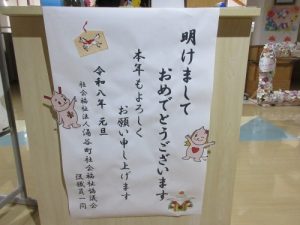 明けまして
おめでとうございます
本年もよろしく
お願い申し上げます
令和八年　元旦
社会福祉法人湯谷町社会福祉協議会
役職員一同